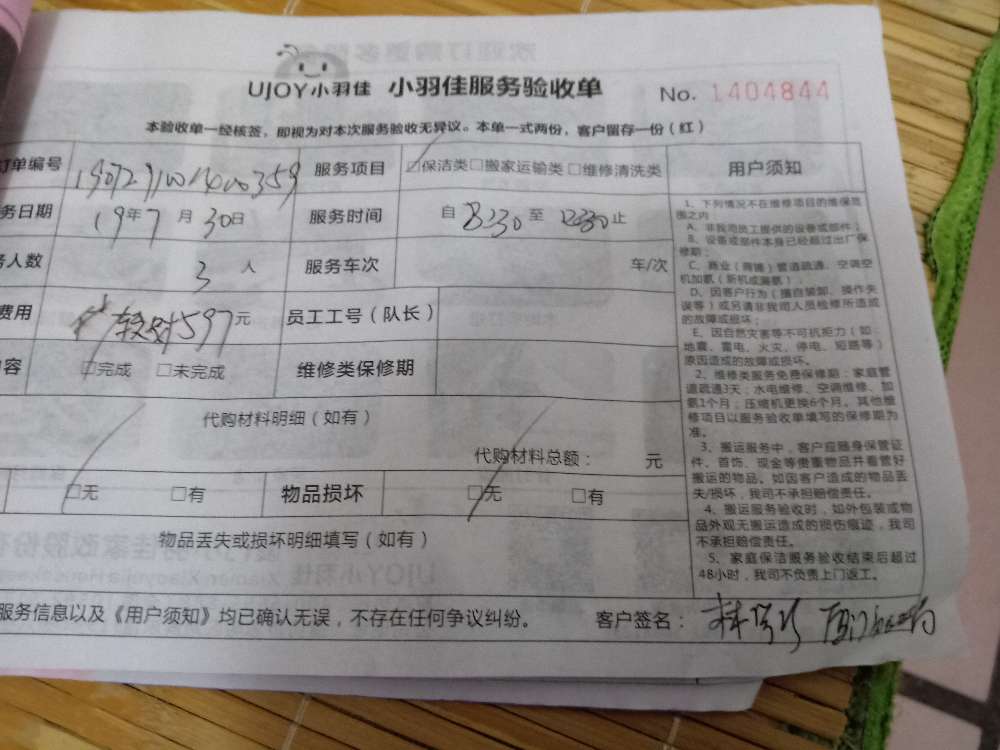 UJOY小羽佳 小羽佳服务验收单 No. 1404844
本验收单一经核签，即视为对本次服务验收无异议。本单一式两份，客户留存一份（红）
订单编号 服务项目 □保洁类□搬家运输类□维修清洗类 用户须知
务日期 19年7月30日 服务时间 自8:30至12:30止
务人数 3人 服务车次 车/次
费用 转账597元 员工工号（队长）
内容 □完成 □未完成 维修类保修期
代购材料明细（如有）
代购材料总额： 元
□无 □有 物品损坏 □无 □有
物品丢失或损坏明细填写（如有）
服务信息以及《用户须知》均已确认无误，不存在任何争议纠纷。 客户签名：
1、下列情况不在维修项目的维保范
围之内：
A、非我司员工提供的设备或部件；
B、设备或部件本身已经超过出厂保
修期；
C、商业（商铺）管道疏通、空调空
机加氨（新机或漏氨）；
D、因客户行为（擅自装卸、操作失
误等）或另请非我司人员检修所造成
的故障或损坏；
E、因自然灾害等不可抗拒力（如：
地震、雷电、火灾、停电、短路等）
原因造成的故障或损坏。
2、维修类服务免费保修期：家庭管
道疏通3天；水电维修、空调维修、加
氨1个月；压缩机更换6个月。其他维
修项目以服务验收单填写的保修期为
准。
3、搬运服务中，客户应随身保管证
件、首饰、现金等贵重物品并看管好
搬运的物品。如因客户造成的物品丢
失/损坏，我司不承担赔偿责任。
4、搬运服务验收时，如外包装或物
品外观无搬运造成的损伤痕迹，我司
不承担赔偿责任。
5、家庭保洁服务验收结束后超过
48小时，我司不负责上门返工。